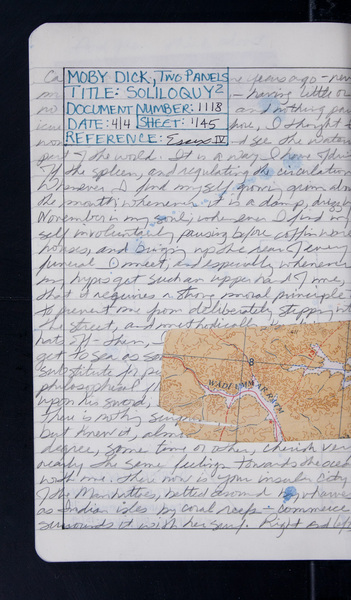 MOBY DICK, TWO PANELS
TITLE: SOLILOQUY²
DOCUMENT NUMBER: 1118
DATE: 4/4 SHEET: 1145
REFERENCE: Essex IV
Ca years ago - never
m - having little or
no and nothing par
icu hore, I thought I
wou nd see the watery
part of the world. It is a way I have of driv
of the spleen, and regulating the circulation
Whenever I find myself growing grim about
the mouth; whenever it is a damp, drizzly
November in my soul; whenever I find my
self involuntarily pausing before coffin ware
houses, and bringing up the rear of every
funeral I meet; and especially whenever
my hypos get such an upper hand of me,
that it requires a strong moral principle
to prevent me from deliberately stepping into
the street, and methodically
hats off - then,
get to sea as so
substitute for pi
philosophical fl
upon his sword,
There is nothing surp
but knew it, almo
degree, some time or other, cherish very
nearly the same feelings towards the ocean
with me. There now is your insular city
of the Manhattoes, belted round by wharves
as Indian isles by coral reefs - commerce
surrounds it with her surf. Right and left,
8
WADI UMM ARRATH